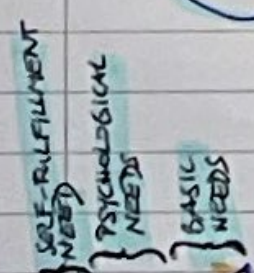 SELF-FULFILLMENT
NEED
PSYCHOLOGICAL
NEEDS
BASIC
NEEDS